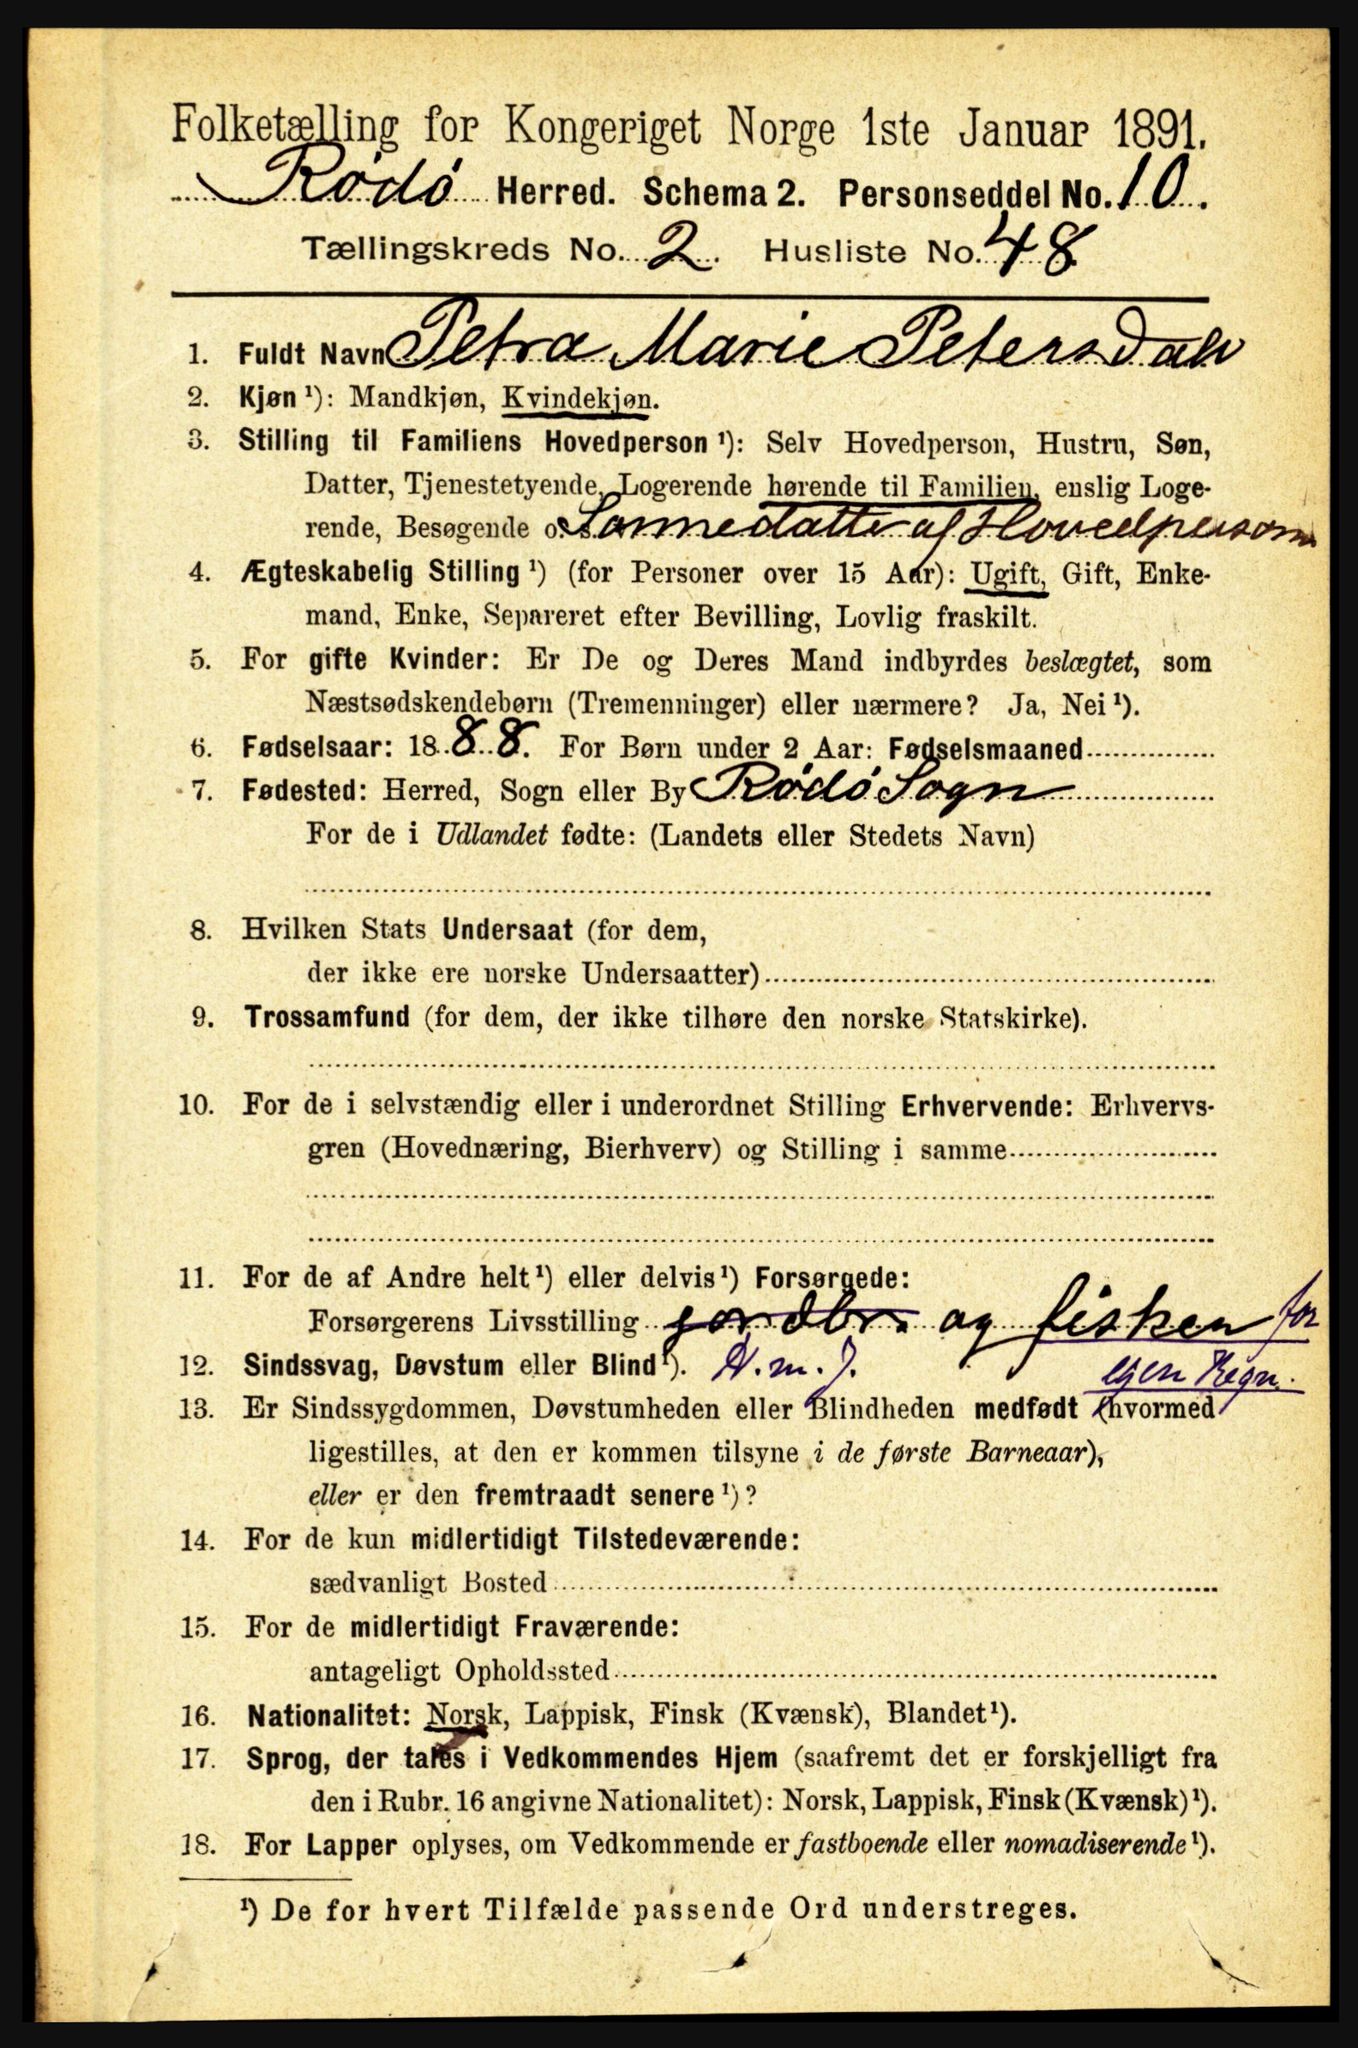 Folketælling for Kongeriget Norge 1ste Januar 1891.
Rødø Herred. Schema 2. Personseddel No. 10.
Tællingskreds No. 2. Husliste No. 48.
1. Fuldt Navn Petra Marie Petersdatr
2. Kjøn ¹): Mandkjøn, Kvindekjøn.
3. Stilling til Familiens Hovedperson ¹): Selv Hovedperson, Hustru, Søn,
Datter, Tjenestetyende, Logerende hørende til Familien, enslig Loge-
rende, Besøgende o. Sønnedatter af Hovedperson
4. Ægteskabelig Stilling ¹) (for Personer over 15 Aar): Ugift, Gift, Enke-
mand, Enke, Separeret efter Bevilling, Lovlig fraskilt.
5. For gifte Kvinder: Er De og Deres Mand indbyrdes beslægtet, som
Næstsødskendebørn (Tremenninger) eller nærmere? Ja, Nei ¹).
6. Fødselsaar: 1888. For Børn under 2 Aar: Fødselsmaaned
7. Fødested: Herred, Sogn eller By Rødø Sogn
For de i Udlandet fødte: (Landets eller Stedets Navn)
8. Hvilken Stats Undersaat (for dem,
der ikke ere norske Undersaatter)
9. Trossamfund (for dem, der ikke tilhøre den norske Statskirke).
10. For de i selvstændig eller i underordnet Stilling Erhvervende: Erhvervs-
gren (Hovednæring, Bierhverv) og Stilling i samme
11. For de af Andre helt ¹) eller delvis ¹) Forsørgede:
Forsørgerens Livsstilling jordbr. og fisken for
12. Sindssvag, Døvstum eller Blind ¹). H. m. J. egen Regn.
13. Er Sindssygdommen, Døvstumheden eller Blindheden medfødt (hvormed
ligestilles, at den er kommen tilsyne i de første Barneaar),
eller er den fremtraadt senere ¹)?
14. For de kun midlertidigt Tilstedeværende:
sædvanligt Bosted
15. For de midlertidigt Fraværende:
antageligt Opholdssted
16. Nationalitet: Norsk, Lappisk, Finsk (Kvænsk), Blandet ¹).
17. Sprog, der tales i Vedkommendes Hjem (saafremt det er forskjelligt fra
den i Rubr. 16 angivne Nationalitet): Norsk, Lappisk, Finsk (Kvænsk) ¹).
18. For Lapper oplyses, om Vedkommende er fastboende eller nomadiserende ¹).
¹) De for hvert Tilfælde passende Ord understreges.